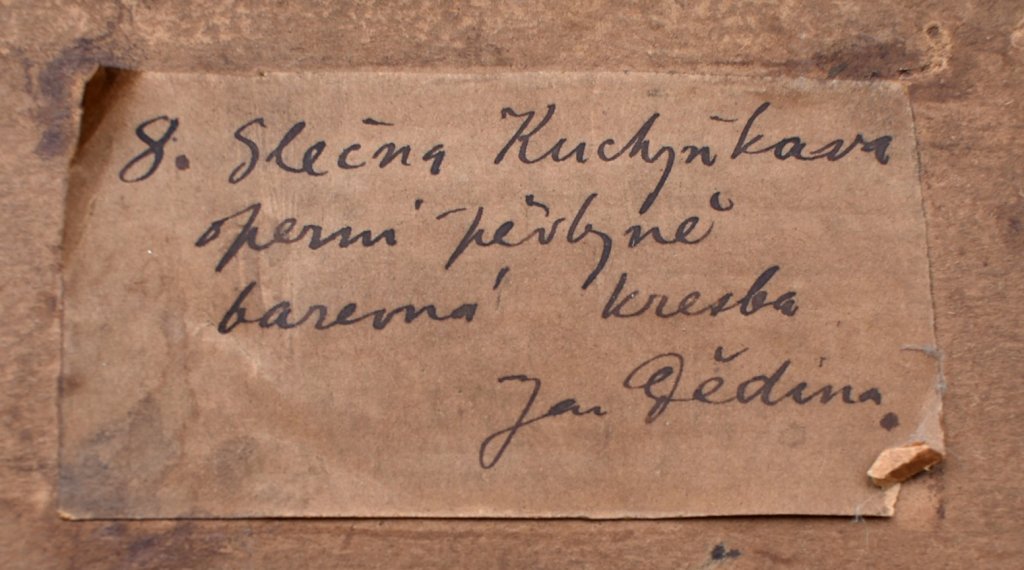 8. Slečna Kuchyňkava
operni pěvkyně
barevná kresba
Jan Dědina.